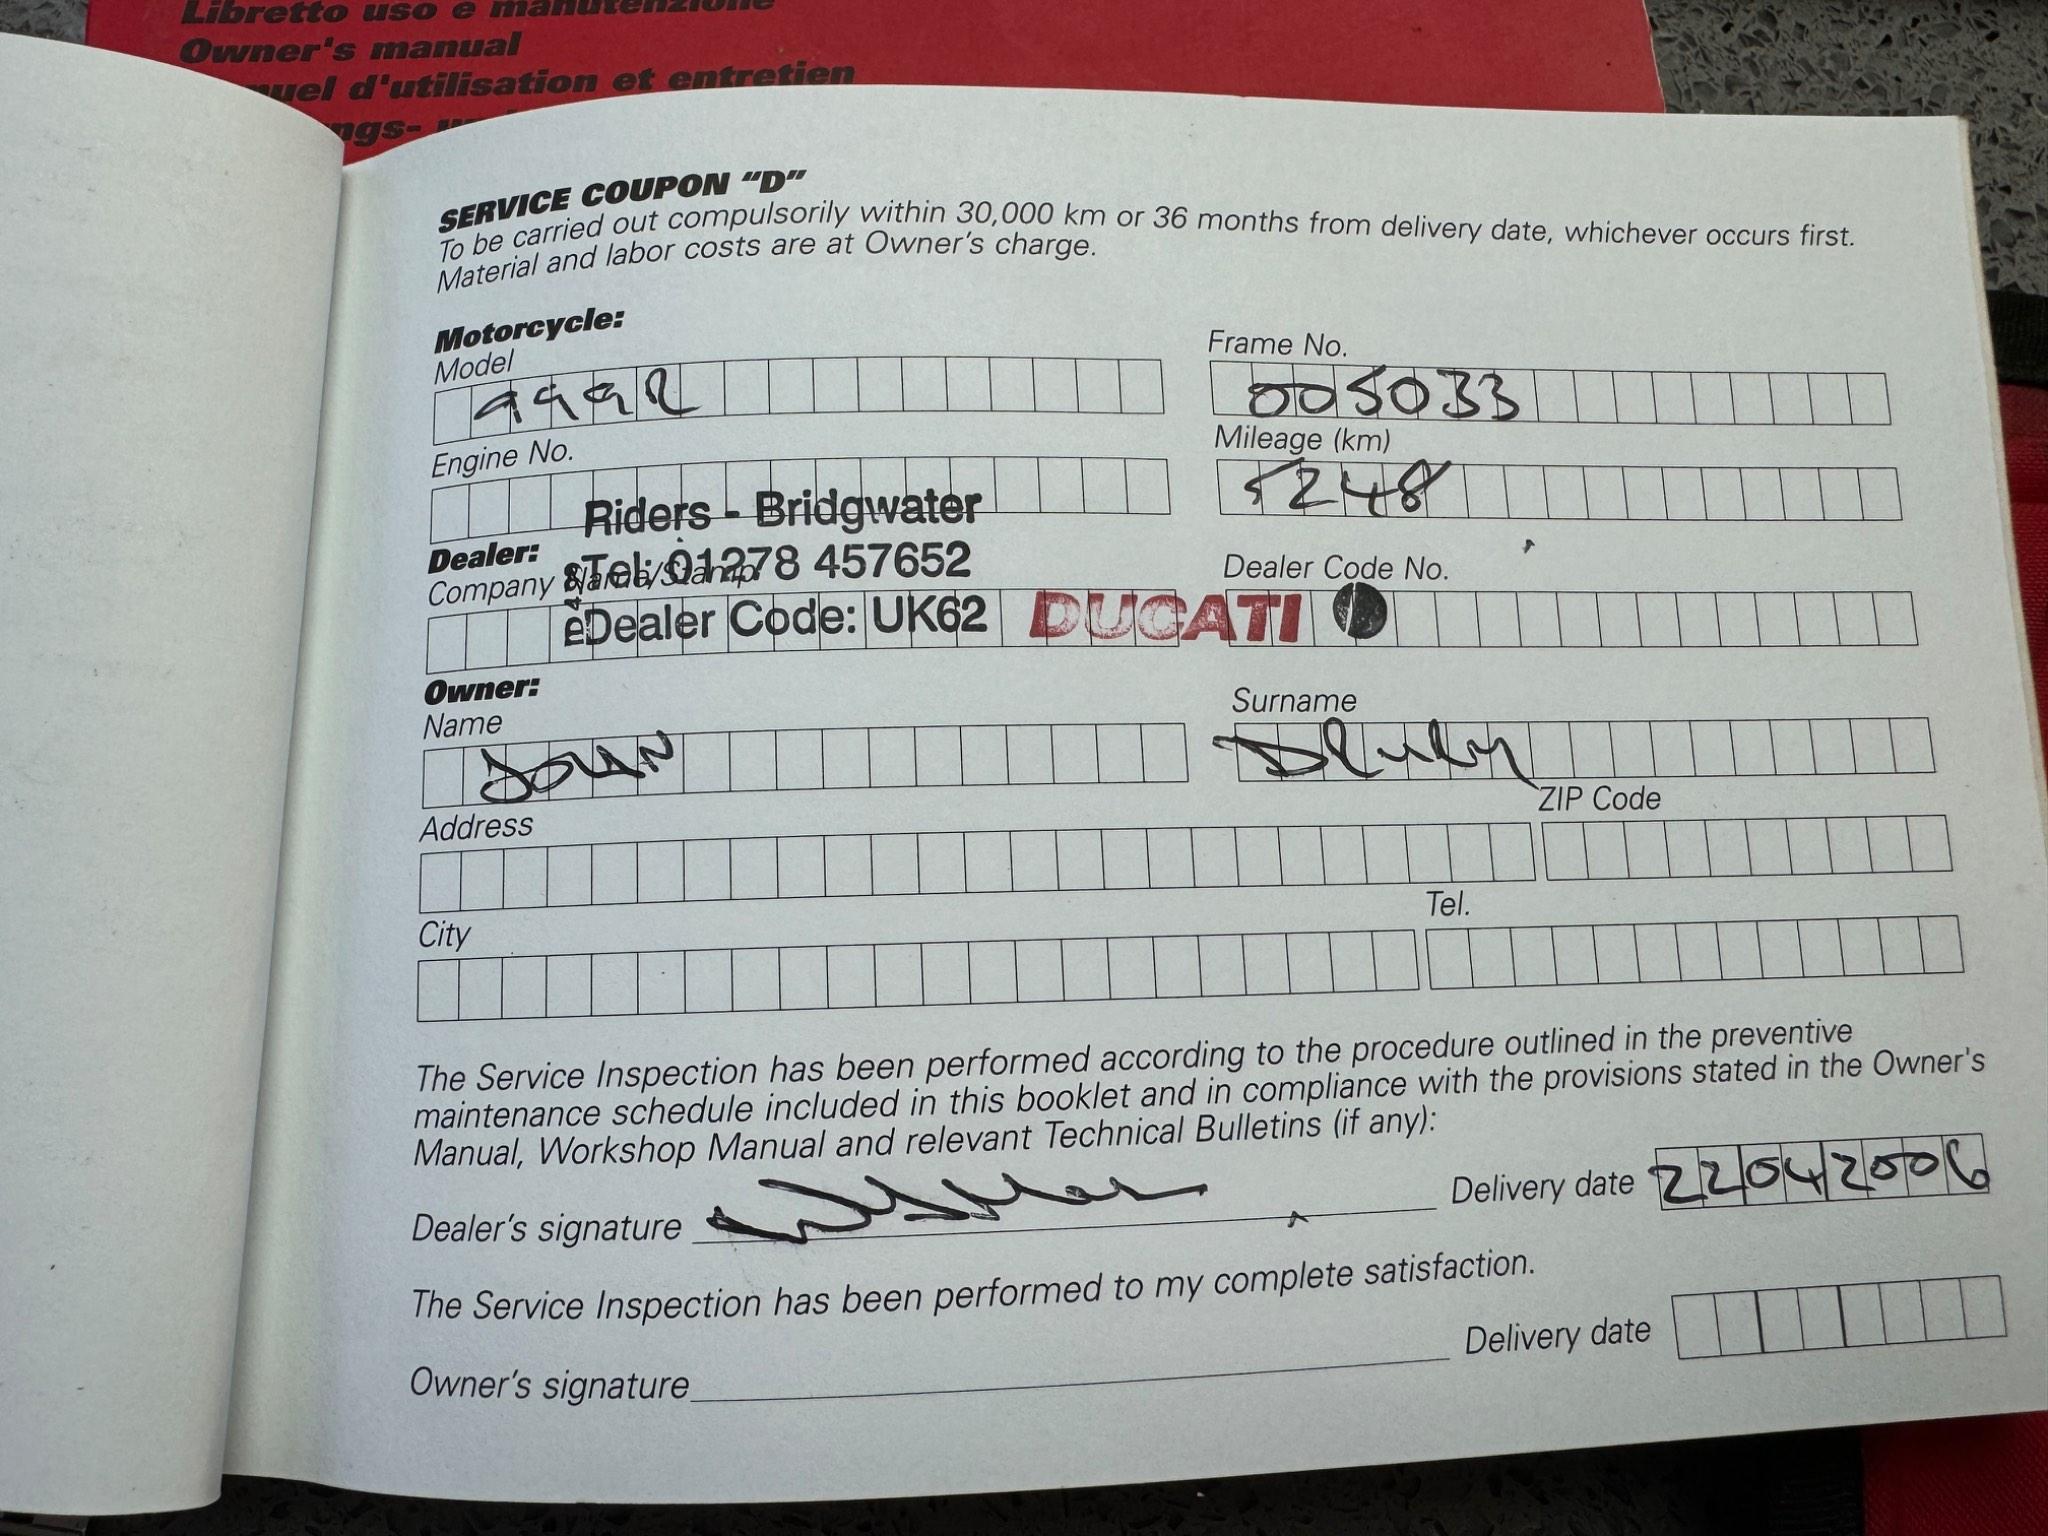 Libretto uso e manutenzione
Owner's manual
uel d'utilisation et entretien
ngs-
SERVICE COUPON "D"
To be carried out compulsorily within 30,000 km or 36 months from delivery date, whichever occurs first.
Material and labor costs are at Owner's charge.
Motorcycle:
Model
999R
Frame No.
005033
Engine No.
Mileage (km)
5248
Riders - Bridgwater
Dealer:
Company Name/Stamp
Tel: 01278 457652
Dealer Code No.
Dealer Code: UK62 DUCATI
Owner:
Name
JOHN
Surname
Address
ZIP Code
City
Tel.
The Service Inspection has been performed according to the procedure outlined in the preventive
maintenance schedule included in this booklet and in compliance with the provisions stated in the Owner's
Manual, Workshop Manual and relevant Technical Bulletins (if any):
Dealer's signature
Delivery date 22042006
The Service Inspection has been performed to my complete satisfaction.
Owner's signature
Delivery date